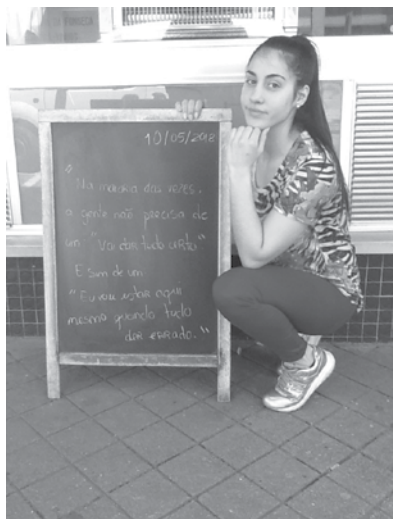 10/05/2018
"
Na maioria das vezes,
a gente não precisa de
um "Vai dar tudo certo"
E sim de um
"Eu vou estar aqui
mesmo quando tudo
der errado."